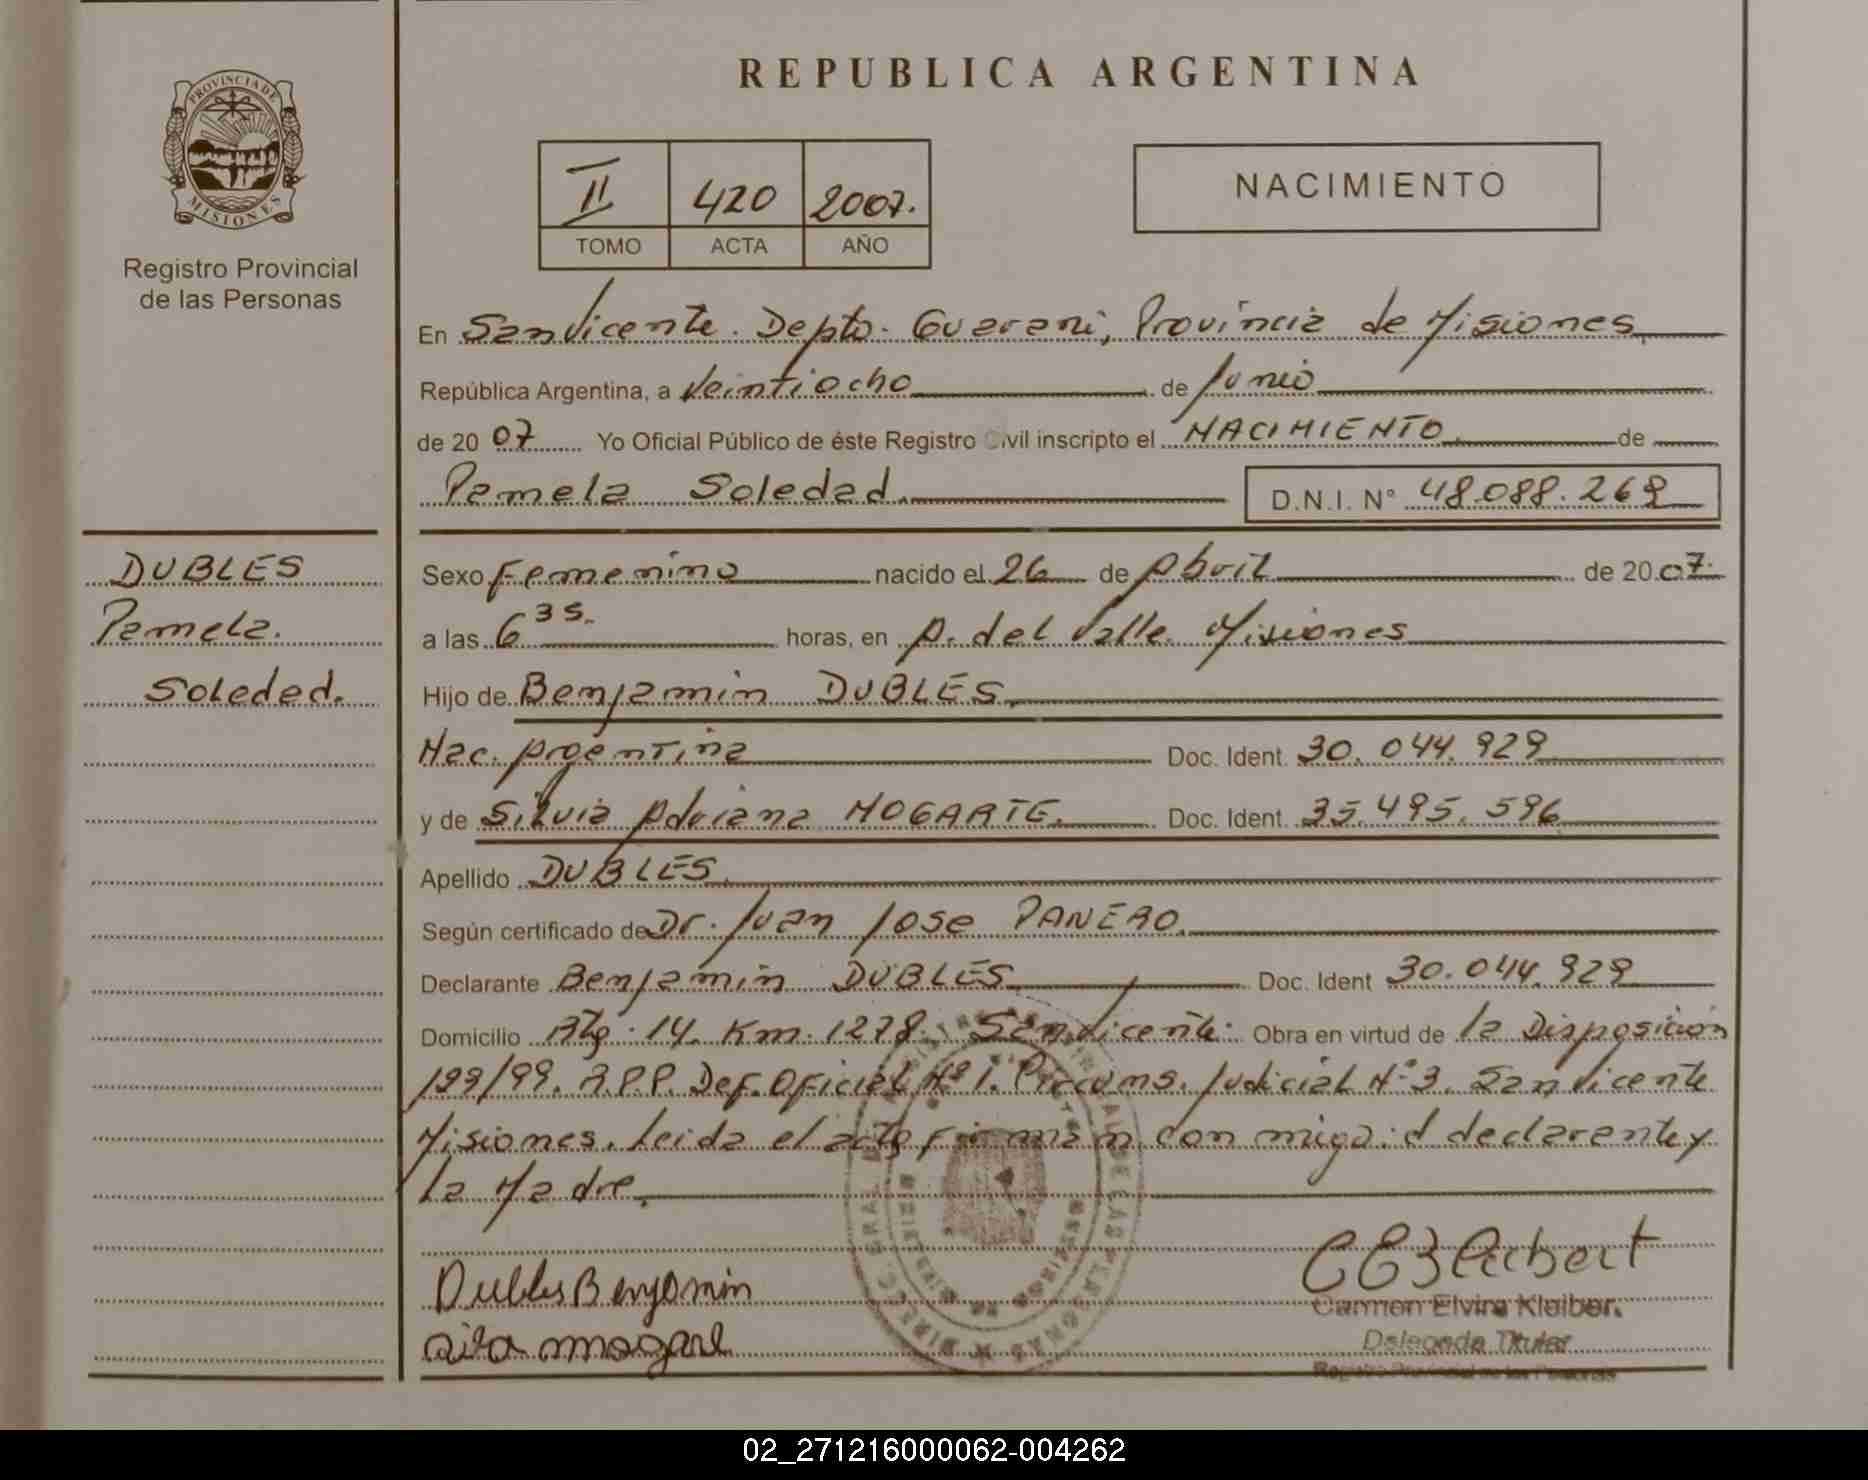 PROVINCIA DE
MISIONES
Registro Provincial
de las Personas
REPUBLICA ARGENTINA
II 420 2007.
TOMO ACTA AÑO
NACIMIENTO
En San Vicente. Depto. Guarani, Provincia de Misiones
República Argentina, a Veintiocho de Junio
de 20 07 Yo Oficial Público de éste Registro Civil inscripto el NACIMIENTO de
Pamela Soledad. D.N.I. N° 48.088.269
DUBLES
Pamela.
Soledad.
Sexo Femenino nacido el 26 de Abril de 20 07.
a las 6 35. horas, en A. del Valle. Misiones
Hijo de Benjamin DUBLES.
Nac. Argentina Doc. Ident. 30.044.929
y de Silvia Adriana MOGARTE. Doc. Ident. 35.495.596
Apellido DUBLES.
Según certificado de Dr. Juan Jose PANERO.
Declarante Benjamin DUBLES Doc. Ident 30.044.929
Domicilio Rta. 14. Km. 1278. San Vicente. Obra en virtud de la Disposición
199/99. R.P.P. Def. Oficial N° 1. Circuns. Judicial N° 3. San Vicente
Misiones. Leida el acta firman con migo: el declarante y
la Madre.
Dubles Benjamin
Carmen Elvira Kleiber.
Delegada Titular
Registro Provincial de las Personas
02_271216000062-004262